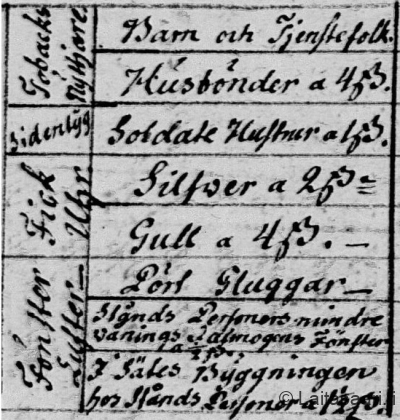 Tobacks Nyttjare
Barn och Tjenstefolk.
Husbönder a 4 ß.
Sidentyg
Soldate Hustrur a 1 ß.
Fick Uhr
Silfver a 2 ß =
Gull a 4 ß. —
Fönster Lufter —
Pört Gluggar —
Stånds Personers mindre
Vånings & Almogens Fönster
a 2 ß.
I Sätes Byggningen
hos Stånds Personer a
© Laitasaari.fi